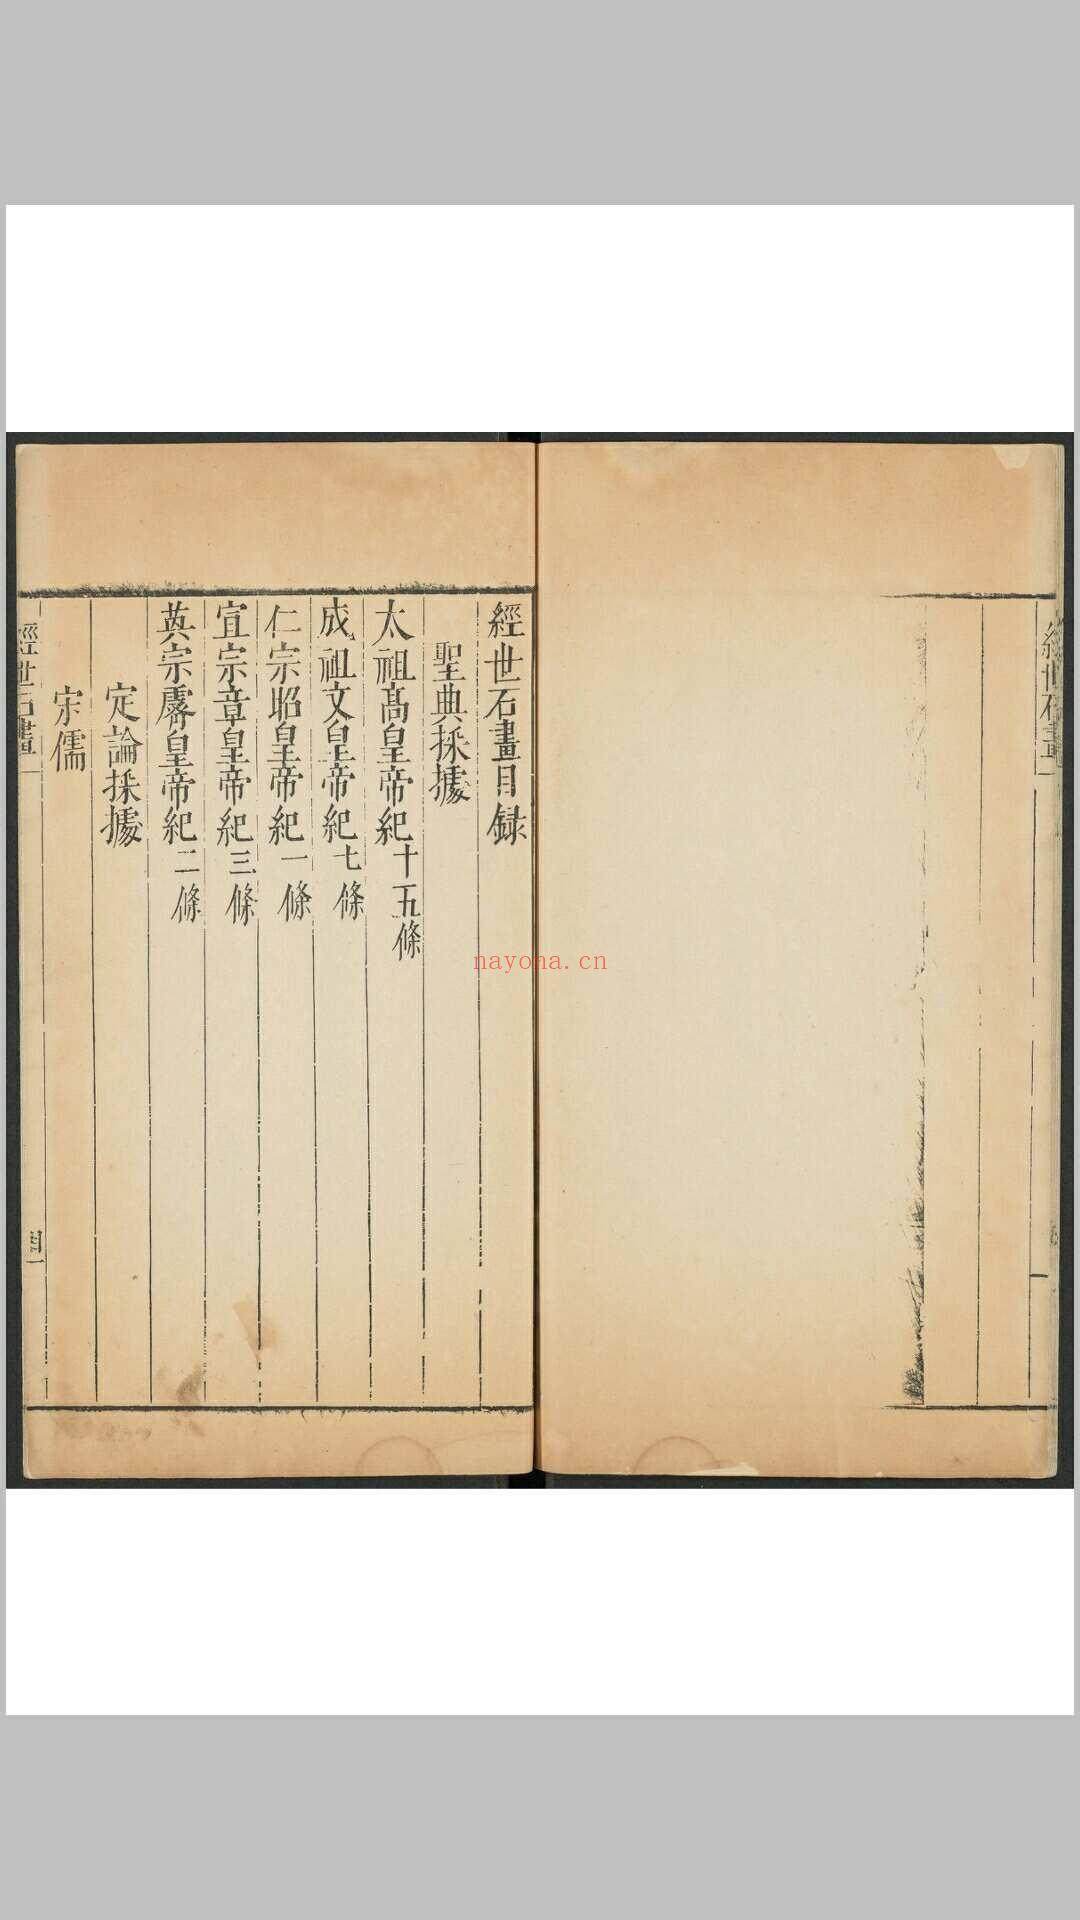 經世石畫
經世石畫目録
聖典採據
太祖高皇帝紀十五條
成祖文皇帝紀七條
仁宗昭皇帝紀一條
宣宗章皇帝紀三條
英宗睿皇帝紀二條
定論採據
宋儒
經世石畫
目一
nayona.cn